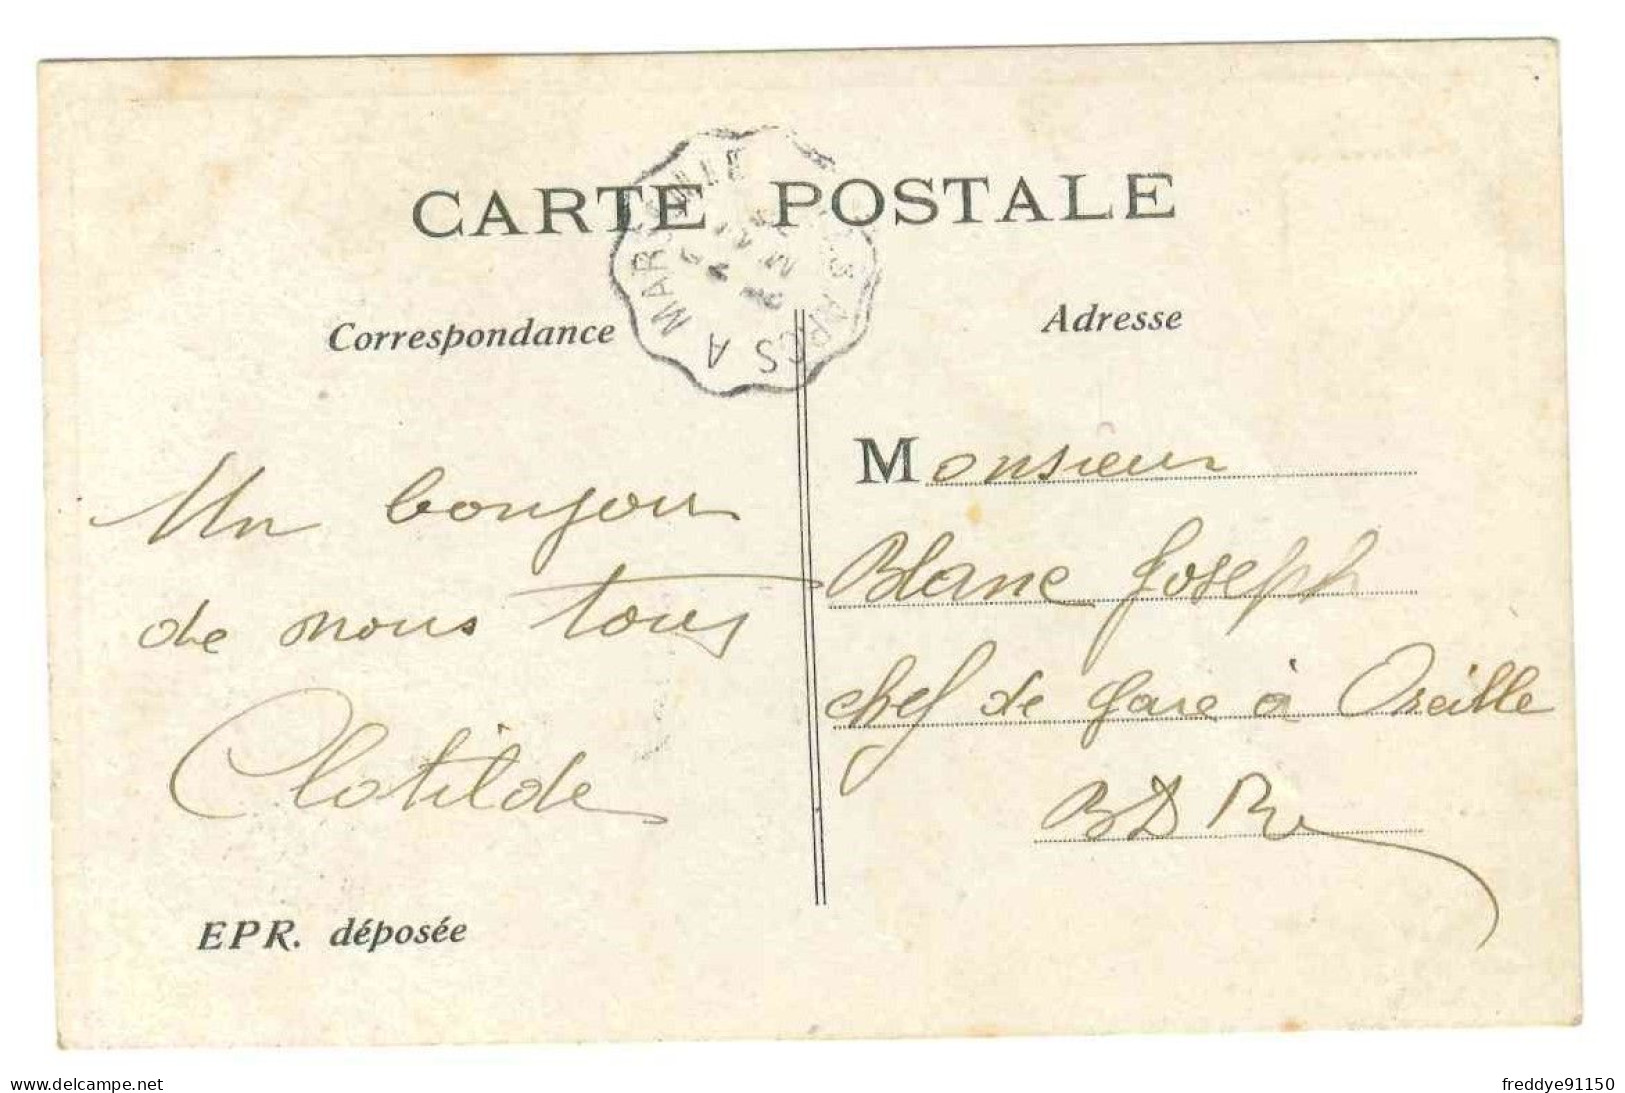 CARTE POSTALE
ARCS A MARSEILLE
Correspondance
Adresse
Un bonjour
de nous tous
Clotilde
Monsieur
Blanc Joseph
chef de gare à Oreille
BDR
EPR. déposée
www.delcampe.net
freddye91150